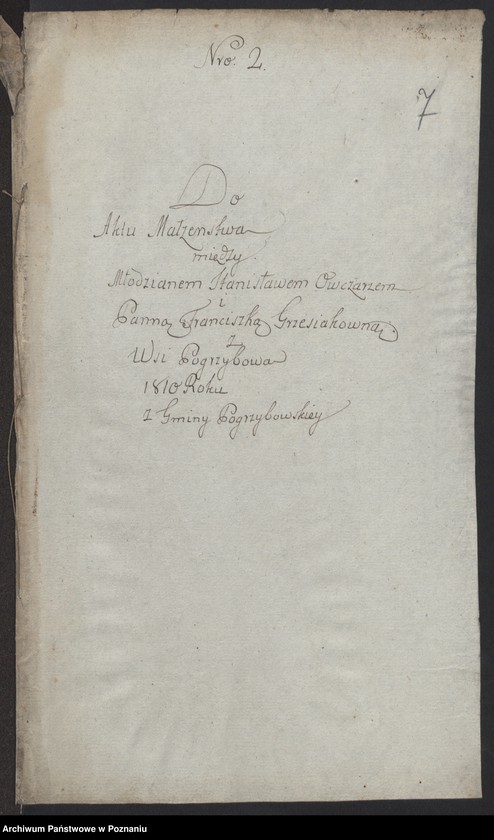 Nro. 2.
7
Do
Aktu Małzenstwa
między
Młodzianem Stanisławem Owczarzem
i
Panną Franciszką Grzesiakowną
z
Wsi Pogrzybowa
1810 Roku
z Gminy Pogrzybowskiey
Archiwum Państwowe w Poznaniu